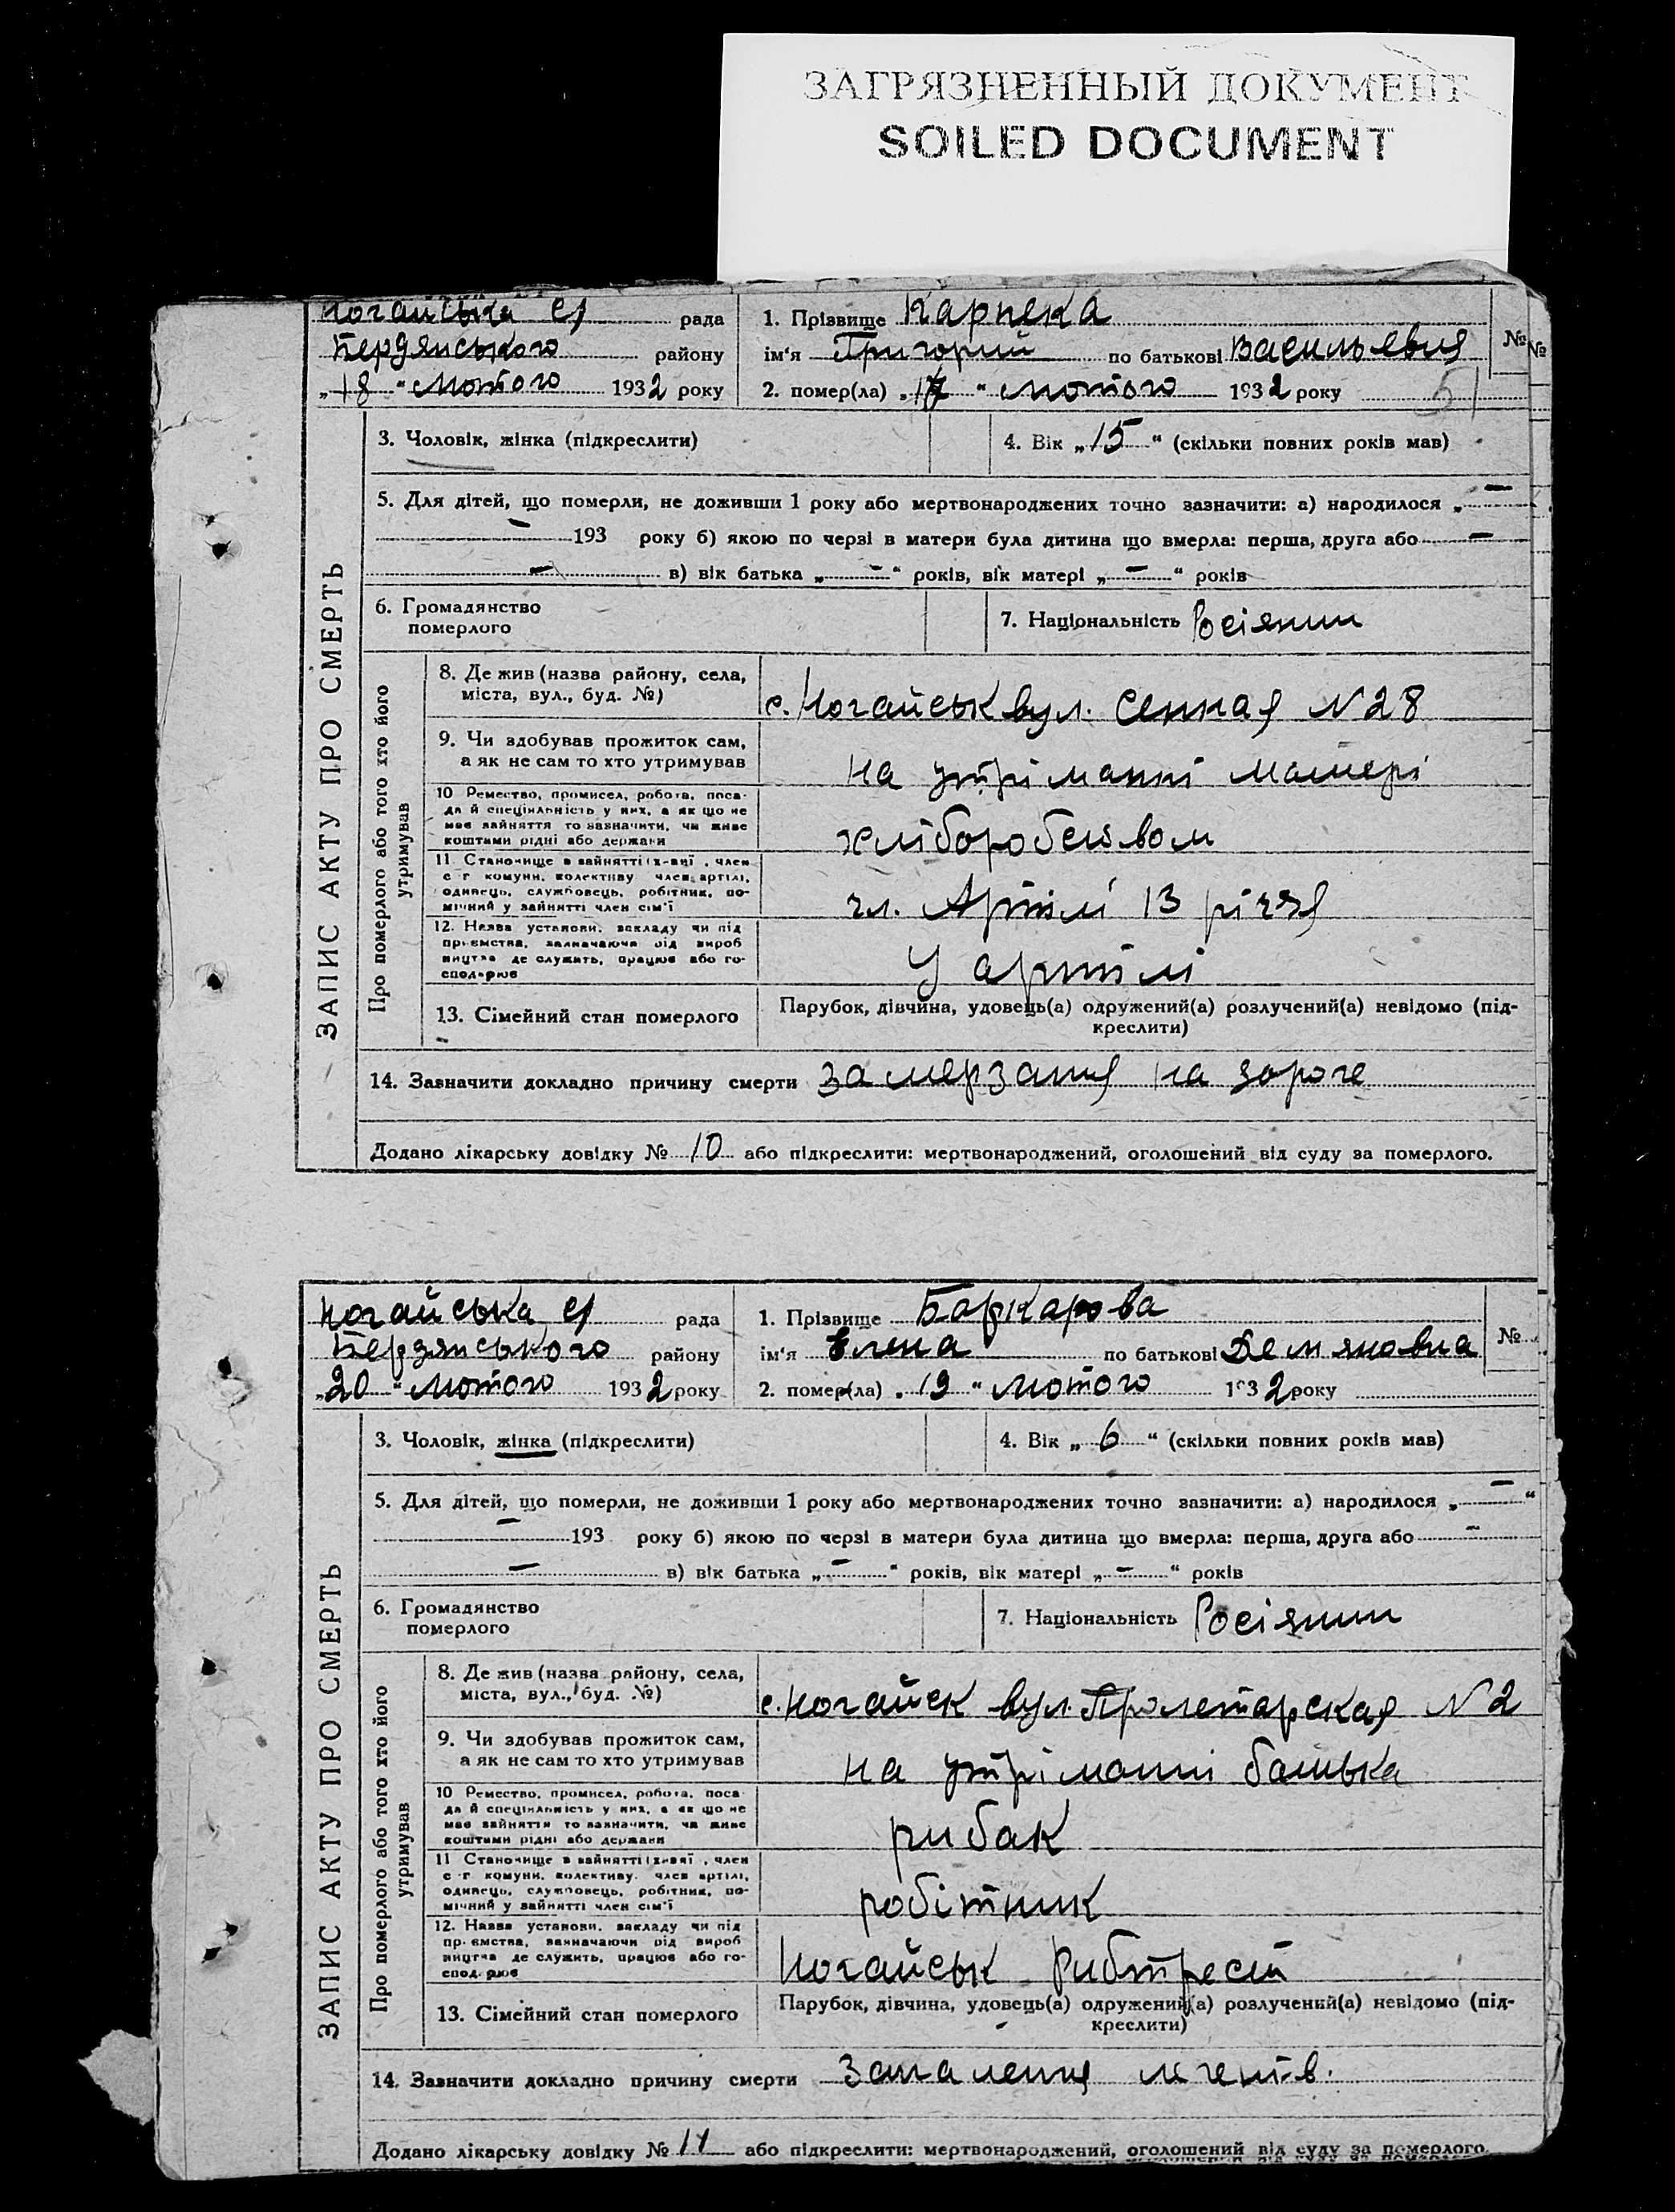 ЗАГРЯЗНЕННЫЙ ДОКУМЕНТ
SOILED DOCUMENT
Ногайська с/ рада
Бердянського району
„18 “ Лютого 1932 року
1. Прізвище Карпека
ім‘я Григорий по батькові Васильевич
2. помер(ла) „17 “ лютого 1932 року
№
№
51
ЗАПИС АКТУ ПРО СМЕРТЬ
3. Чоловік, жінка (підкреслити)
4. Вік „15“ (скільки повних років мав)
5. Для дітей, що померли, не доживши 1 року або мертвонароджених точно зазначити: а) народилося „ –
– 193 року б) якою по черзі в матери була дитина що вмерла: перша, друга або –
– в) вік батька „ – “ років, вік матері „ – “ років
6. Громадянство
померлого
7. Національність Росіянин
Про померлого або того хто його
утримував
8. Де жив (назва району, села,
міста, вул., буд. №)
с. Ногайськ вул. Сенная N 28
9. Чи здобував прожиток сам,
а як не сам то хто утримував
на утріманні матері
10 Ремество, промисел, робота, поса-
да й спеціяльність у них, а як що не
має зайняття то зазначити, чи живе
коштами рідні або держави
хліборобством
11 Становище в зайнятті (х-ваї, член
с-г комуни, колективу член артілі,
одинець, службовець, робітник, по-
мічний у зайнятті член сім‘ї
чл. Артілі 13 річчя
12. Назва установи, закладу чи під
приємства, зазначаючи рід вироб
ництва де служить, працює або го-
сподарює
У артілі
13. Сімейний стан померлого
Парубок, дівчина, удовець(а) одружений(а) розлучений(а) невідомо (під-
креслити)
14. Зазначити докладно причину смерти замерзания на дороге
Додано лікарську довідку № 10 або підкреслити: мертвонароджений, оголошений від суду за померлого.
Ногайська с/ рада
Бердянського району
„20 “ Лютого 1932 року
1. Прізвище Боркарова
ім‘я Елена по батькові Демяновна
2. помер(ла) „19 “ Лютого 1932 року
№
ЗАПИС АКТУ ПРО СМЕРТЬ
3. Чоловік, жінка (підкреслити)
4. Вік „ 6 “ (скільки повних років мав)
5. Для дітей, що померли, не доживши 1 року або мертвонароджених точно зазначити: а) народилося „ – “
– 193 року б) якою по черзі в матери була дитина що вмерла: перша, друга або –
– в) вік батька „ – “ років, вік матері „ – “ років
6. Громадянство
померлого
7. Національність Росіянин
Про померлого або того хто його
утримував
8. Де жив (назва району, села,
міста, вул., буд. №)
с. Ногайск вул. Пролетарская N 2
9. Чи здобував прожиток сам,
а як не сам то хто утримував
на утріманні батька
10 Ремество, промисел, робота, поса-
да й спеціяльність у них, а як що не
має зайняття то зазначити, чи живе
коштами рідні або держави
рибак
11 Становище в зайнятті (х-ваї, член
с-г комуни, колективу, член артілі,
одинець, службовець, робітник, по-
мічний у зайнятті член сім‘ї
робітник
12. Назва установи, закладу чи під
приємства, зазначаючи рід вироб
ництва де служить, працює або го-
сподарює
Ногайськ Рибтрест
13. Сімейний стан померлого
Парубок, дівчина, удовець(а) одружений(а) розлучений(а) невідомо (під-
креслити)
14. Зазначити докладно причину смерти Запалення легенів.
Додано лікарську довідку № 11 або підкреслити: мертвонароджений, оголошений від суду за померлого.